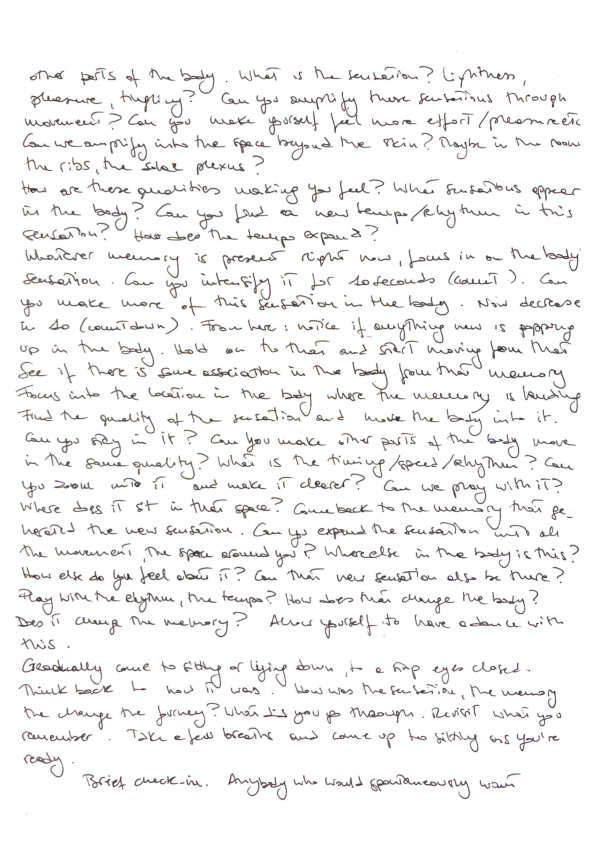 other parts of the body. What is the sensation? Lightness,
pleasure, tingling? Can you amplify these sensations through
movement? Can you make yourself feel more effort/pleasure etc
Can we amplify into the space beyond the skin? Maybe in the room
the ribs, the solar plexus?
How are these qualities making you feel? What sensations appear
in the body? Can you find a new tempo/rhythm in this
sensation? How does the tempo expand?
Whatever memory is present right now, focus in on the body
sensation. Can you intensify it for 10 seconds (count). Can
you make more of this sensation in the body. Now decrease
in 10 (countdown). From here: notice if anything new is popping
up in the body. Hold on to that and start moving from that
See if there is some association in the body from that memory
Focus into the location in the body where the memory is landing
Find the quality of the sensation and move the body into it.
Can you stay in it? Can you make other parts of the body move
in the same quality? What is the timing/speed/rhythm? Can
you zoom into it and make it clearer? Can we play with it?
Where does it sit in that space? Come back to the memory that ge-
nerated the new sensation. Can you expand the sensation into all
the movement, the space around you? Where else in the body is this?
How else do you feel about it? Can that new sensation also be there?
Play with the rhythm, the tempo? How does that change the body?
Does it change the memory? Allow yourself to have a dance with
this.
Gradually come to sitting or lying down, to a stop eyes closed.
Think back to how it was. How was the sensation, the memory
the change the journey? What did you go through. Revisit what you
remember. Take a few breaths and come up to sitting as you're
ready.
Brief check-in. Anybody who would spontaneously want